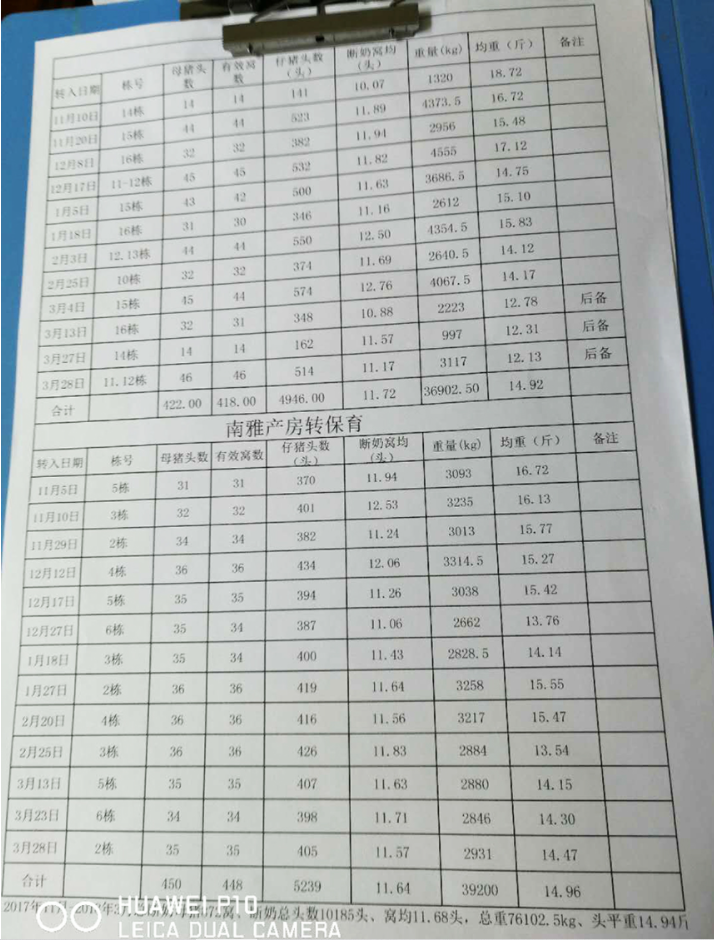 转入日期 栋号 母猪头数 有效窝数 仔猪头数(头) 断奶窝均(头) 重量(kg) 均重(斤) 备注
11月10日 14栋 14 14 141 10.07 1320 18.72
11月20日 15栋 44 44 523 11.89 4373.5 16.72
12月8日 16栋 32 32 382 11.94 2956 15.48
12月17日 11-12栋 45 45 532 11.82 4555 17.12
1月5日 15栋 43 42 500 11.63 3686.5 14.75
1月18日 16栋 31 30 346 11.16 2612 15.10
2月3日 12.13栋 44 44 550 12.50 4354.5 15.83
2月25日 10栋 32 32 374 11.69 2640.5 14.12
3月4日 15栋 45 44 574 12.76 4067.5 14.17
3月13日 16栋 32 31 348 10.88 2223 12.78 后备
3月27日 14栋 14 14 162 11.57 997 12.31 后备
3月28日 11.12栋 46 46 514 11.17 3117 12.13 后备
合计 422.00 418.00 4946.00 11.72 36902.50 14.92
南雅产房转保育
转入日期 栋号 母猪头数 有效窝数 仔猪头数(头) 断奶窝均(头) 重量(kg) 均重(斤) 备注
11月5日 5栋 31 31 370 11.94 3093 16.72
11月10日 3栋 32 32 401 12.53 3235 16.13
11月29日 2栋 34 34 382 11.24 3013 15.77
12月12日 4栋 36 36 434 12.06 3314.5 15.27
12月17日 5栋 35 35 394 11.26 3038 15.42
12月27日 6栋 35 34 387 11.06 2662 13.76
1月18日 3栋 35 34 400 11.43 2828.5 14.14
1月27日 2栋 36 36 419 11.64 3258 15.55
2月20日 4栋 36 36 416 11.56 3217 15.47
2月25日 3栋 36 36 426 11.83 2884 13.54
3月13日 5栋 35 35 407 11.63 2880 14.15
3月23日 6栋 34 34 398 11.71 2846 14.30
3月28日 2栋 35 35 405 11.57 2931 14.47
合计 450 448 5239 11.64 39200 14.96
2017年11月-2018年3月 断奶母猪872窝、断奶总头数10185头、窝均11.68头，总重76102.5kg、头平重14.94斤
HUAWEI P10
LEICA DUAL CAMERA